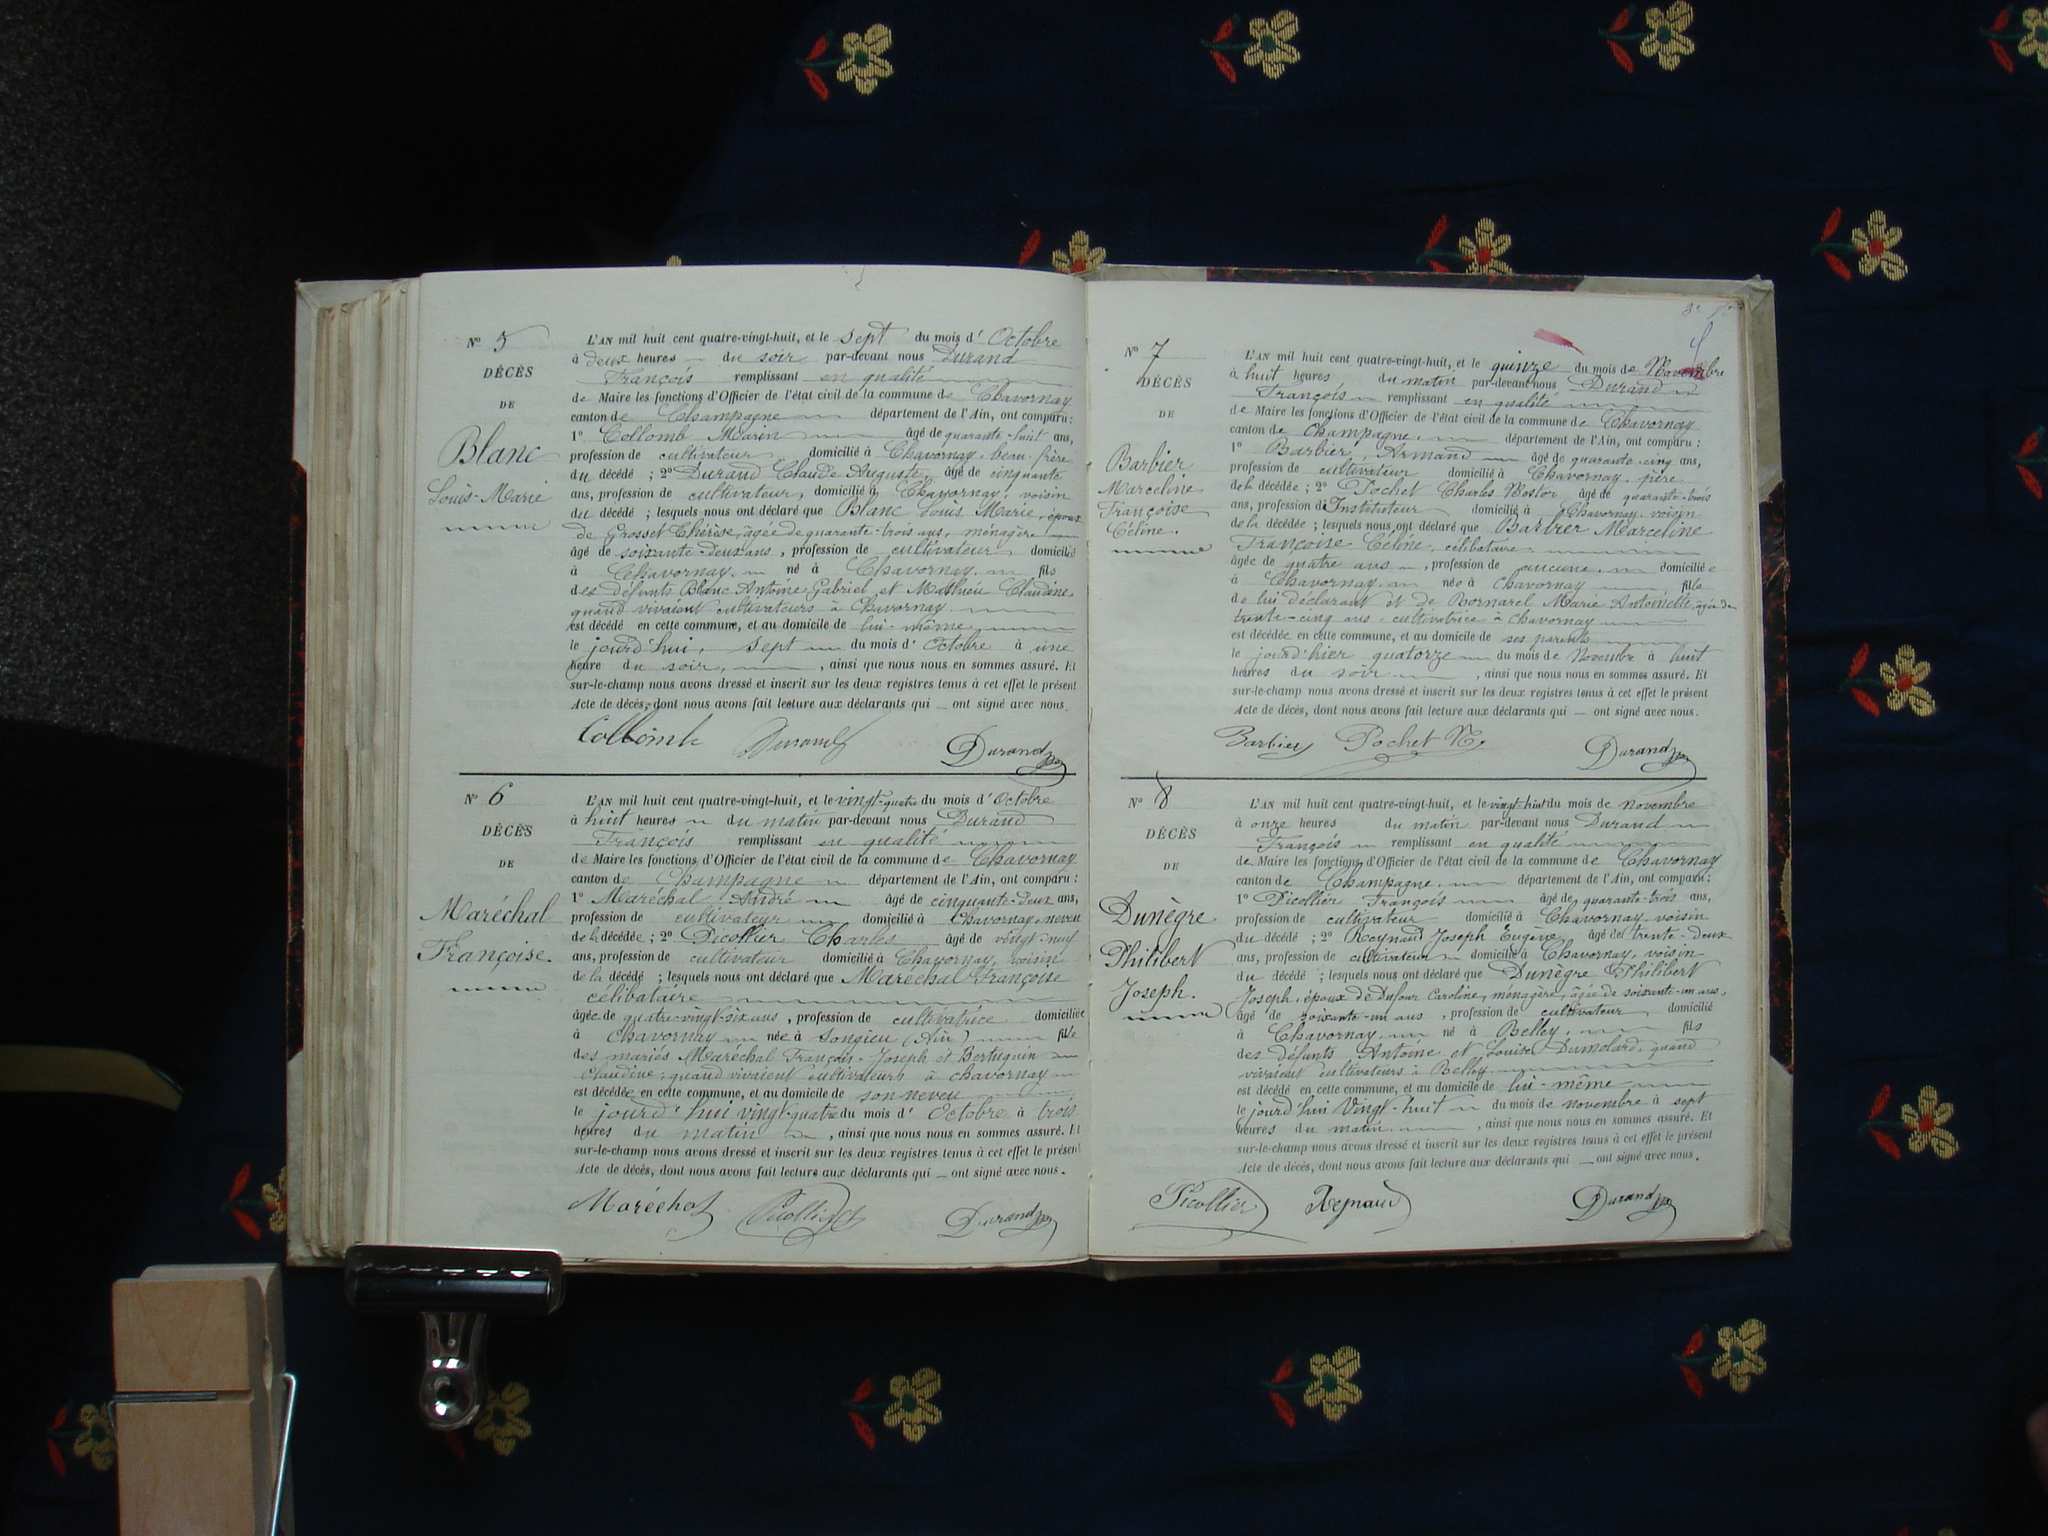 N° 5
DÉCÈS
DE
Blanc
Louis-Marie
L'AN mil huit cent quatre-vingt-huit, et le sept du mois d'Octobre
à deux heures du soir par-devant nous Durand
François remplissant en qualité
de Maire les fonctions d'Officier de l'état civil de la commune de Chavornay
canton de Champagne département de l'Ain, ont comparu :
1° Collomb Marin âgé de quarante-huit ans,
profession de cultivateur domicilié à Chavornay, beau-frère
du décédé ; 2° Durand Claude Auguste, âgé de cinquante
ans, profession de cultivateur, domicilié à Chavornay, voisin
du décédé ; lesquels nous ont déclaré que Blanc Louis Marie, époux
de Grosset Thérèse, âgée de quarante-trois ans, ménagère
âgé de soixante-deux ans, profession de cultivateur domicilié
à Chavornay né à Chavornay fils
des défunts Blanc Antoine Gabriel et Mathieu Claudine
quand vivaient cultivateurs à Chavornay
est décédé en cette commune, et au domicile de lui-même
le jourd'hui, sept du mois d'Octobre à une
heure du soir, ainsi que nous nous en sommes assuré. Et
sur-le-champ nous avons dressé et inscrit sur les deux registres tenus à cet effet le présent
Acte de décès, dont nous avons fait lecture aux déclarants qui — ont signé avec nous.
Collomb Durand Durand
N° 6
DÉCÈS
DE
Maréchal
Françoise.
L'AN mil huit cent quatre-vingt-huit, et le vingt-quatre du mois d'Octobre
à huit heures du matin par-devant nous Durand
François remplissant en qualité
de Maire les fonctions d'Officier de l'état civil de la commune de Chavornay
canton de Champagne département de l'Ain, ont comparu :
1° Maréchal André âgé de cinquante-deux ans,
profession de cultivateur domicilié à Chavornay, neveu
de la décédée ; 2° Picollier Charles âgé de vingt-neuf
ans, profession de cultivateur domicilié à Chavornay, voisin
de la décédé ; lesquels nous ont déclaré que Maréchal Françoise
célibataire
âgée de quatre-vingt-six ans, profession de cultivatrice domiciliée
à Chavornay née à Songieu (Ain) fille
des mariés Maréchal François-Joseph et Bertuguin
Claudine, quand vivaient cultivateurs à Chavornay
est décédée en cette commune, et au domicile de son neveu
le jourd'hui vingt-quatre du mois d'Octobre à trois
heures du matin, ainsi que nous nous en sommes assuré. Et
sur-le-champ nous avons dressé et inscrit sur les deux registres tenus à cet effet le présent
Acte de décès, dont nous avons fait lecture aux déclarants qui — ont signé avec nous.
Maréchal Picollier Durand
N° 7
DÉCÈS
DE
Barbier
Marceline
Françoise
Céline.
L'AN mil huit cent quatre-vingt-huit, et le quinze du mois de Novembre
à huit heures du matin par-devant nous Durand
François remplissant en qualité
de Maire les fonctions d'Officier de l'état civil de la commune de Chavornay
canton de Champagne. département de l'Ain, ont comparu :
1° Barbier, Armand âgé de quarante-cinq ans,
profession de cultivateur domicilié à Chavornay, père
de la décédée ; 2° Pochet Charles Nestor âgé de quarante-trois
ans, profession d'Instituteur domicilié à Chavornay, voisin
de la décédée ; lesquels nous ont déclaré que Barbier Marceline
Françoise Céline, célibataire
âgée de quatre ans, profession de aucune. domiciliée
à Chavornay. née à Chavornay fille
de lui déclarant et de Bornarel Marie Antoinette âgée de
trente-cinq ans, cultivatrice à Chavornay
est décédée en cette commune, et au domicile de ses parents
le jourd'hier quatorze du mois de Novembre à huit
heures du soir, ainsi que nous nous en sommes assuré. Et
sur-le-champ nous avons dressé et inscrit sur les deux registres tenus à cet effet le présent
Acte de décès, dont nous avons fait lecture aux déclarants qui — ont signé avec nous.
Barbier Pochet N. Durand
N° 8
DÉCÈS
DE
Dunègre
Philibert
Joseph.
L'AN mil huit cent quatre-vingt-huit, et le vingt-huit du mois de novembre
à onze heures du matin par-devant nous Durand
François remplissant en qualité
de Maire les fonctions d'Officier de l'état civil de la commune de Chavornay
canton de Champagne. département de l'Ain, ont comparu :
1° Picollier François âgé de quarante-trois ans,
profession de cultivateur domicilié à Chavornay, voisin
du décédé ; 2° Reynaud Joseph Eugène âgé de trente-deux
ans, profession de cultivateur domicilié à Chavornay, voisin
du décédé ; lesquels nous ont déclaré que Dunègre Philibert
Joseph, époux de Dufour Caroline, ménagère, âgée de soixante-un ans,
âgé de soixante-un ans, profession de cultivateur, domicilié
à Chavornay. né à Belley. fils
des défunts Antoine et Louise Dumolard, quand
vivaient cultivateurs à Belley
est décédé en cette commune, et au domicile de lui-même
le jourd'hui Vingt-huit du mois de novembre à sept
heures du matin, ainsi que nous nous en sommes assuré. Et
sur-le-champ nous avons dressé et inscrit sur les deux registres tenus à cet effet le présent
Acte de décès, dont nous avons fait lecture aux déclarants qui — ont signé avec nous.
Picollier Reynaud Durand